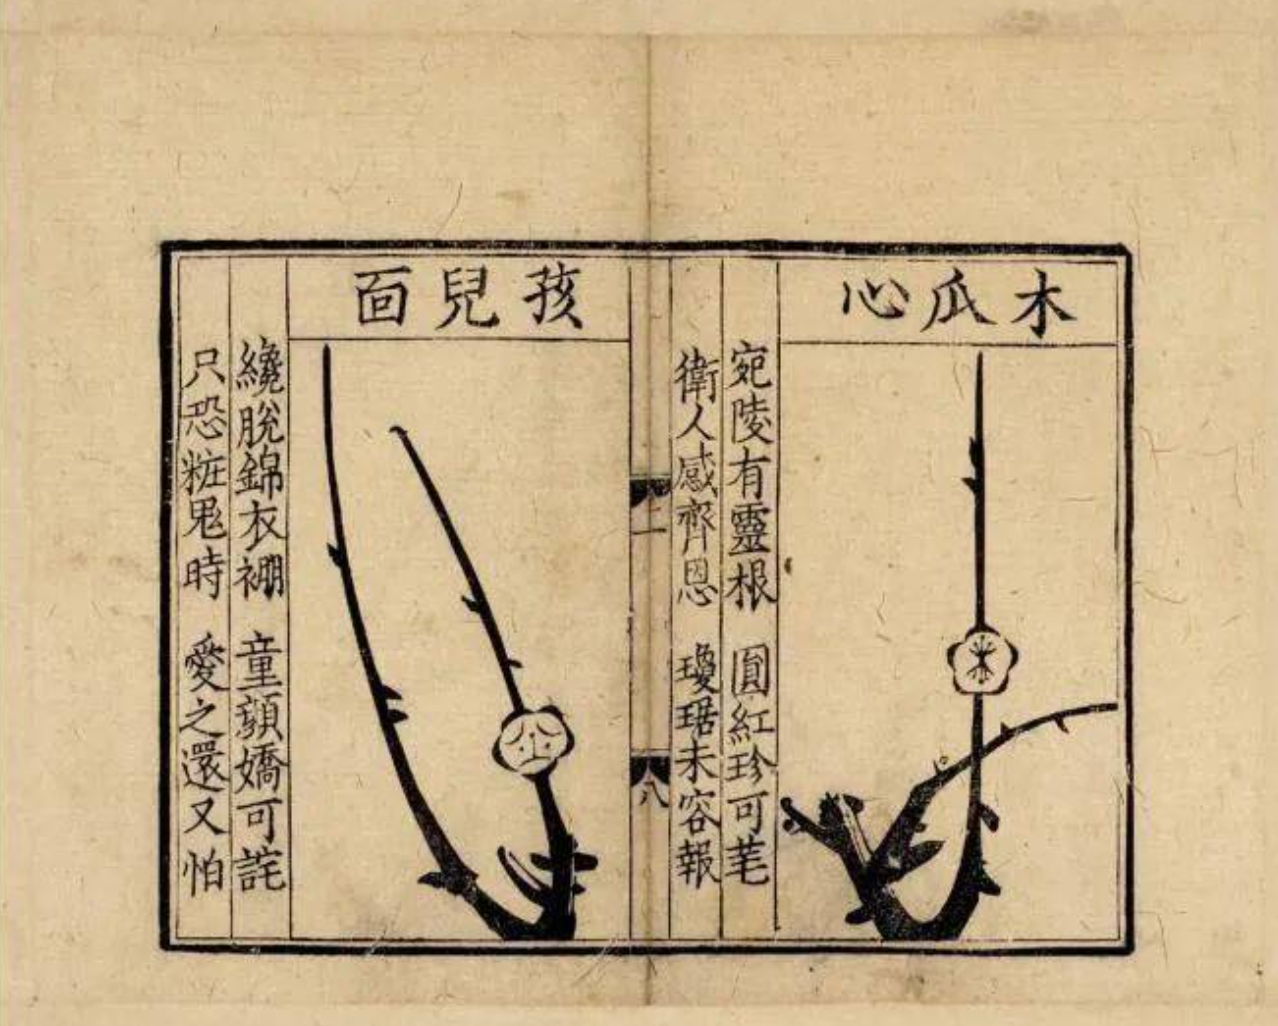 木瓜心
宛陵有靈根 圓紅珍可芼
衛人感齊恩 瓊琚未容報
一
八
孩兒面
纔脫錦衣 童顏嬌可詫
只恐粧鬼時 愛之還又怕